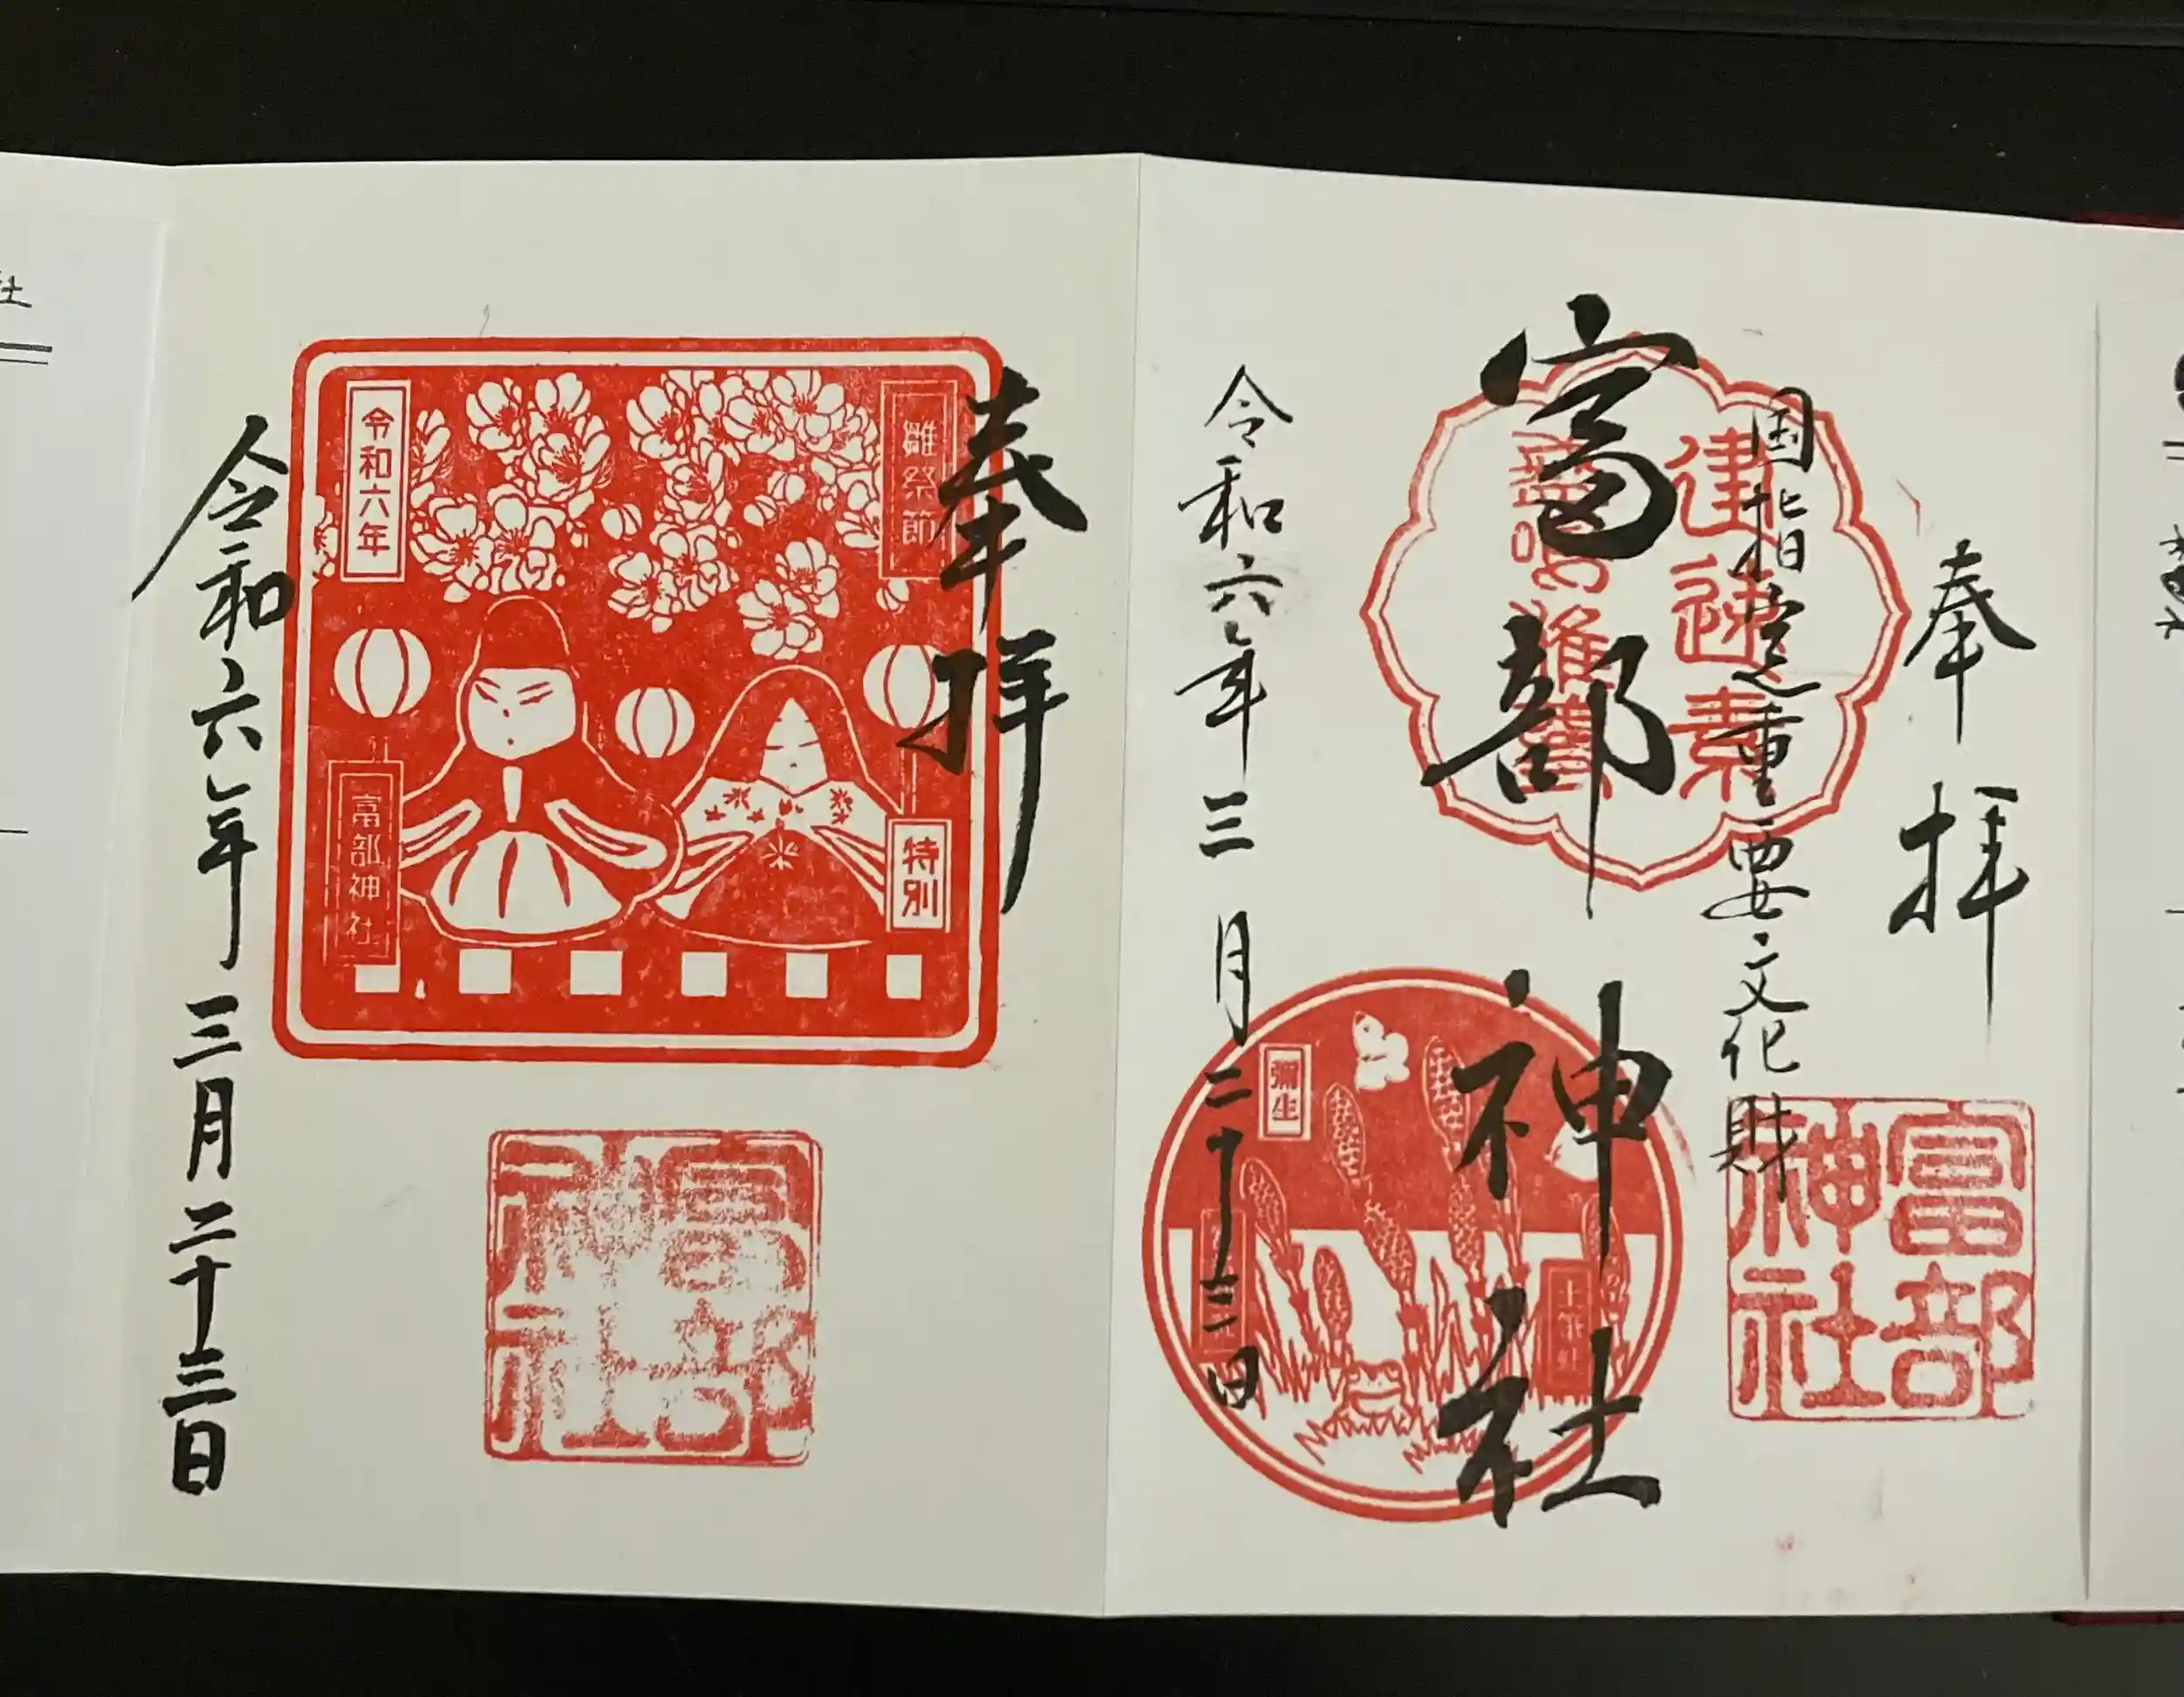 奉拝
国指定重要文化財
建速素
富部神社
富部神社
令和六年三月二十三日
彌生
奉拝
雛祭節
特別
令和六年
富部神社
富部神社
令和六年三月二十三日
社